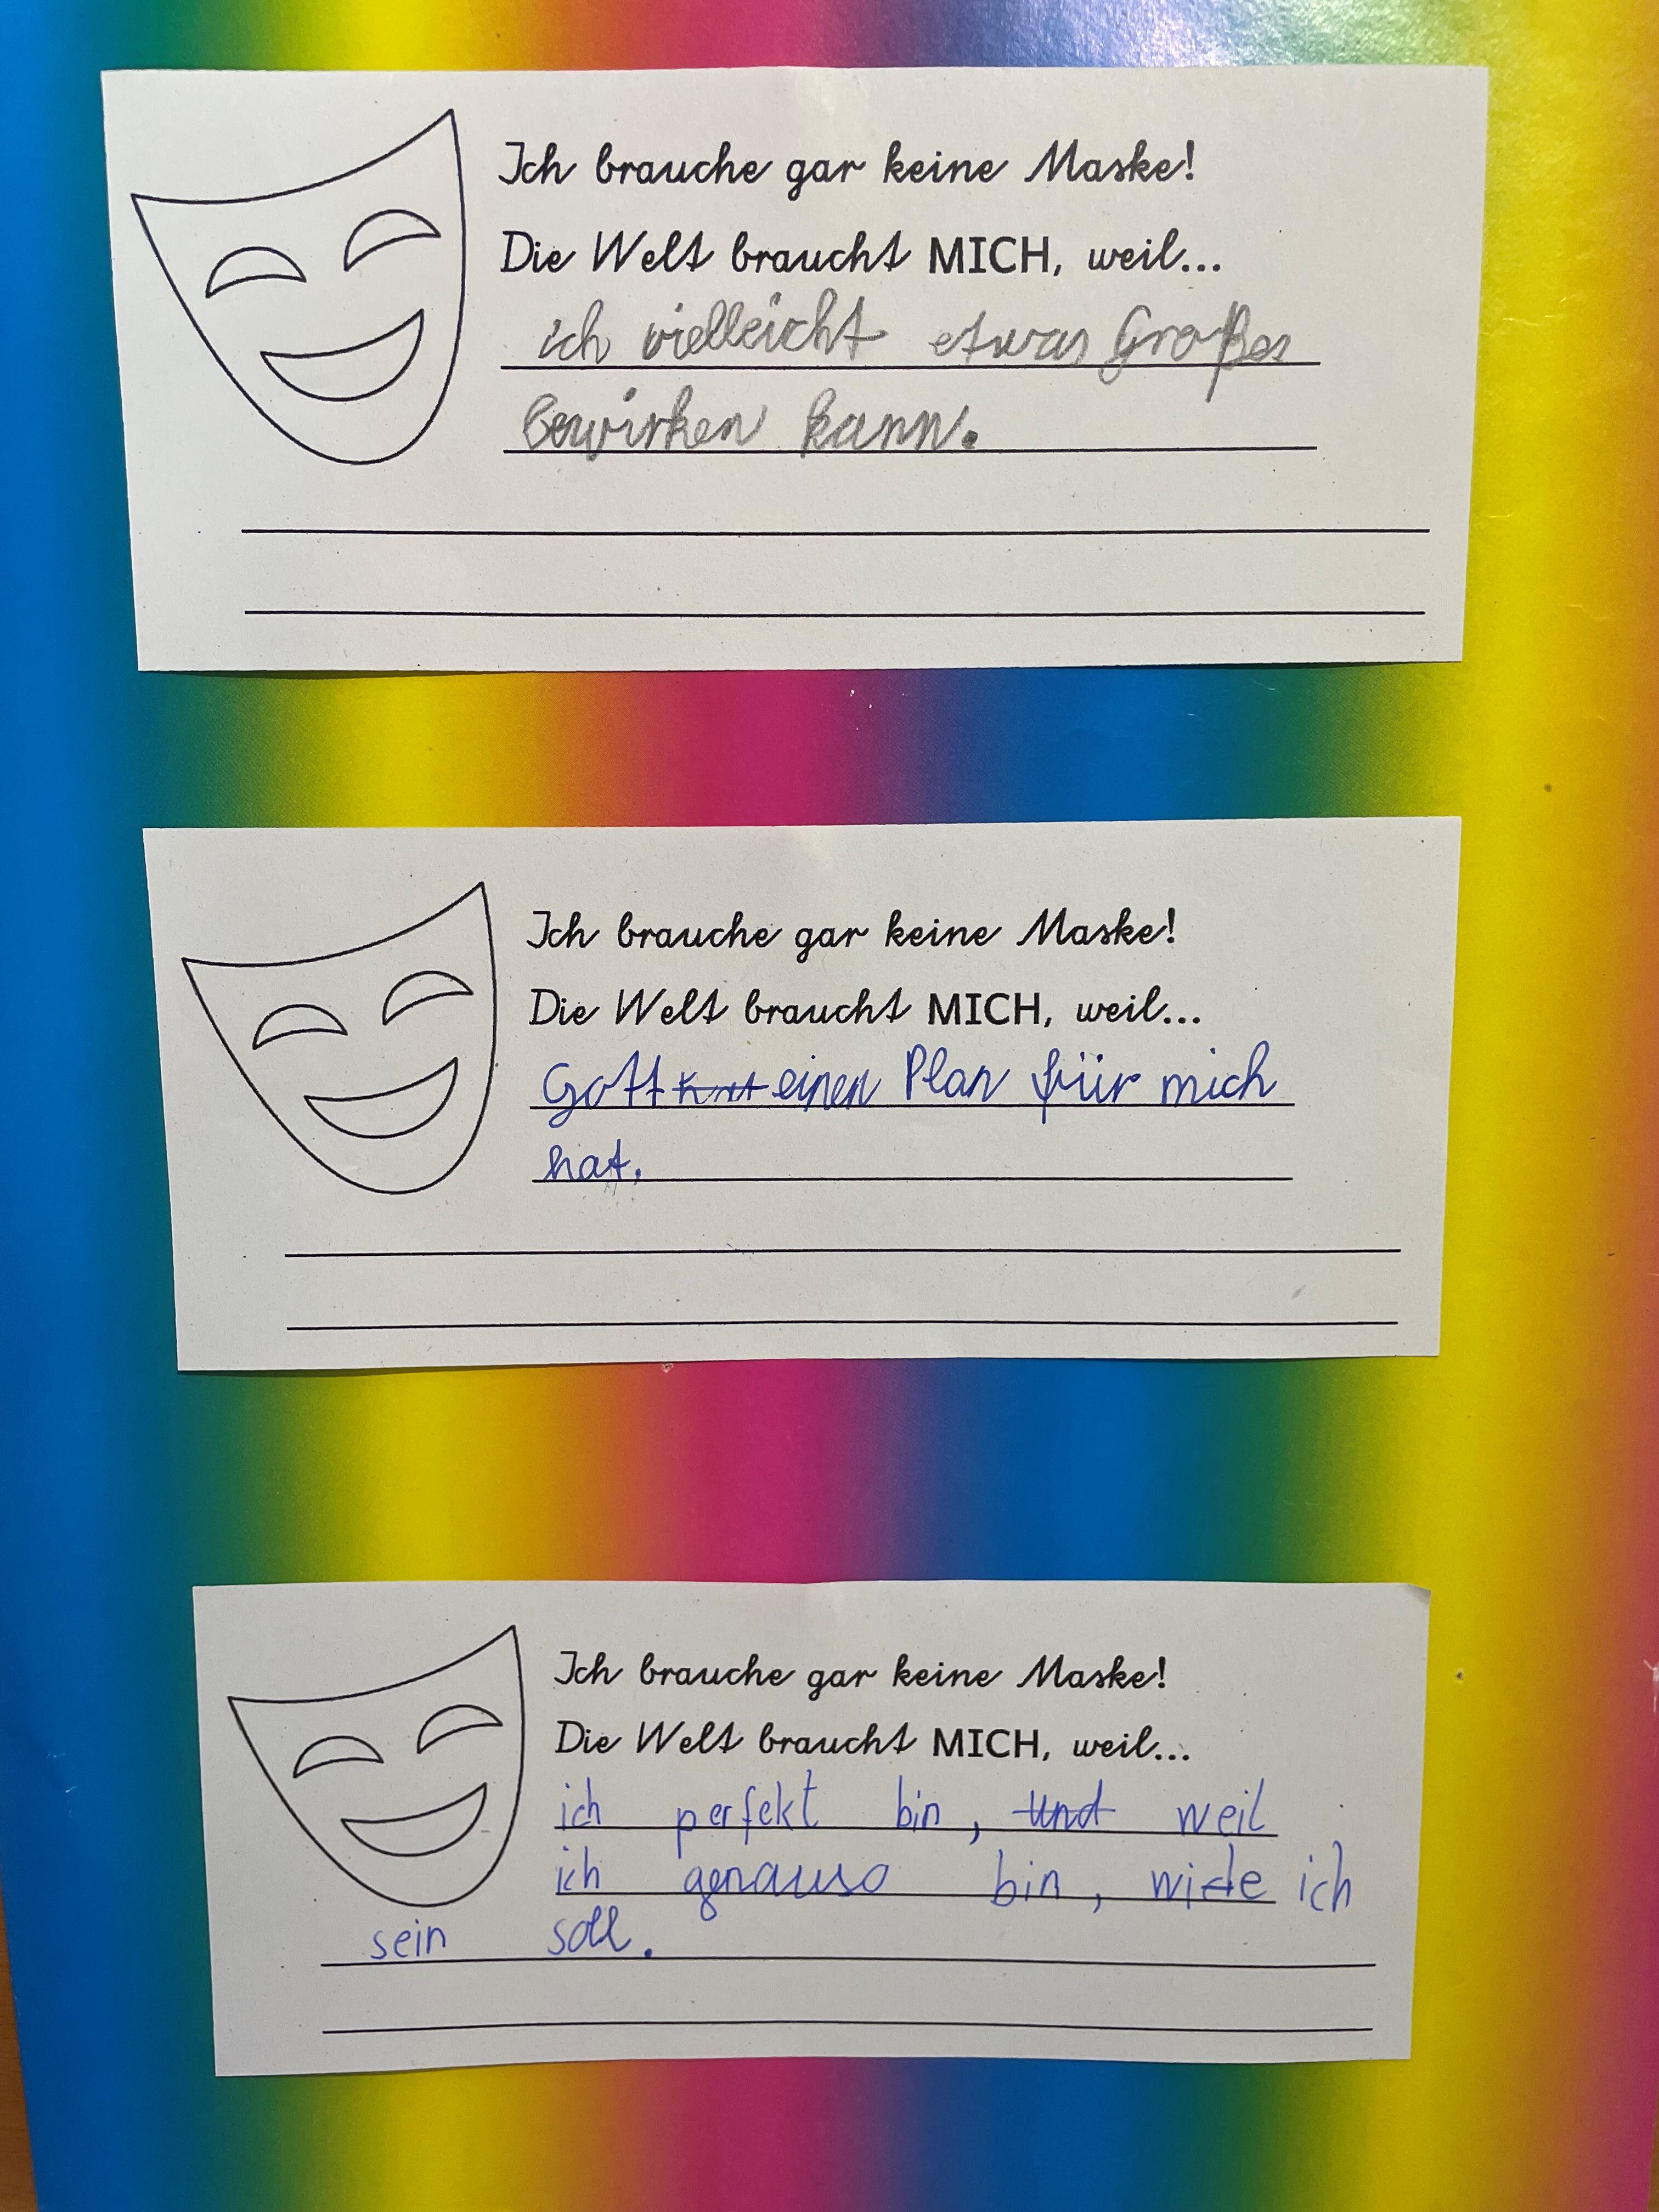 Ich brauche gar keine Maske!
Die Welt braucht MICH, weil...
ich vielleicht etwas Großes
bewirken kann.
Ich brauche gar keine Maske!
Die Welt braucht MICH, weil...
Gott einen Plan für mich
hat.
Ich brauche gar keine Maske!
Die Welt braucht MICH, weil...
ich perfekt bin, und weil
ich genauso bin, wie ich
sein soll.